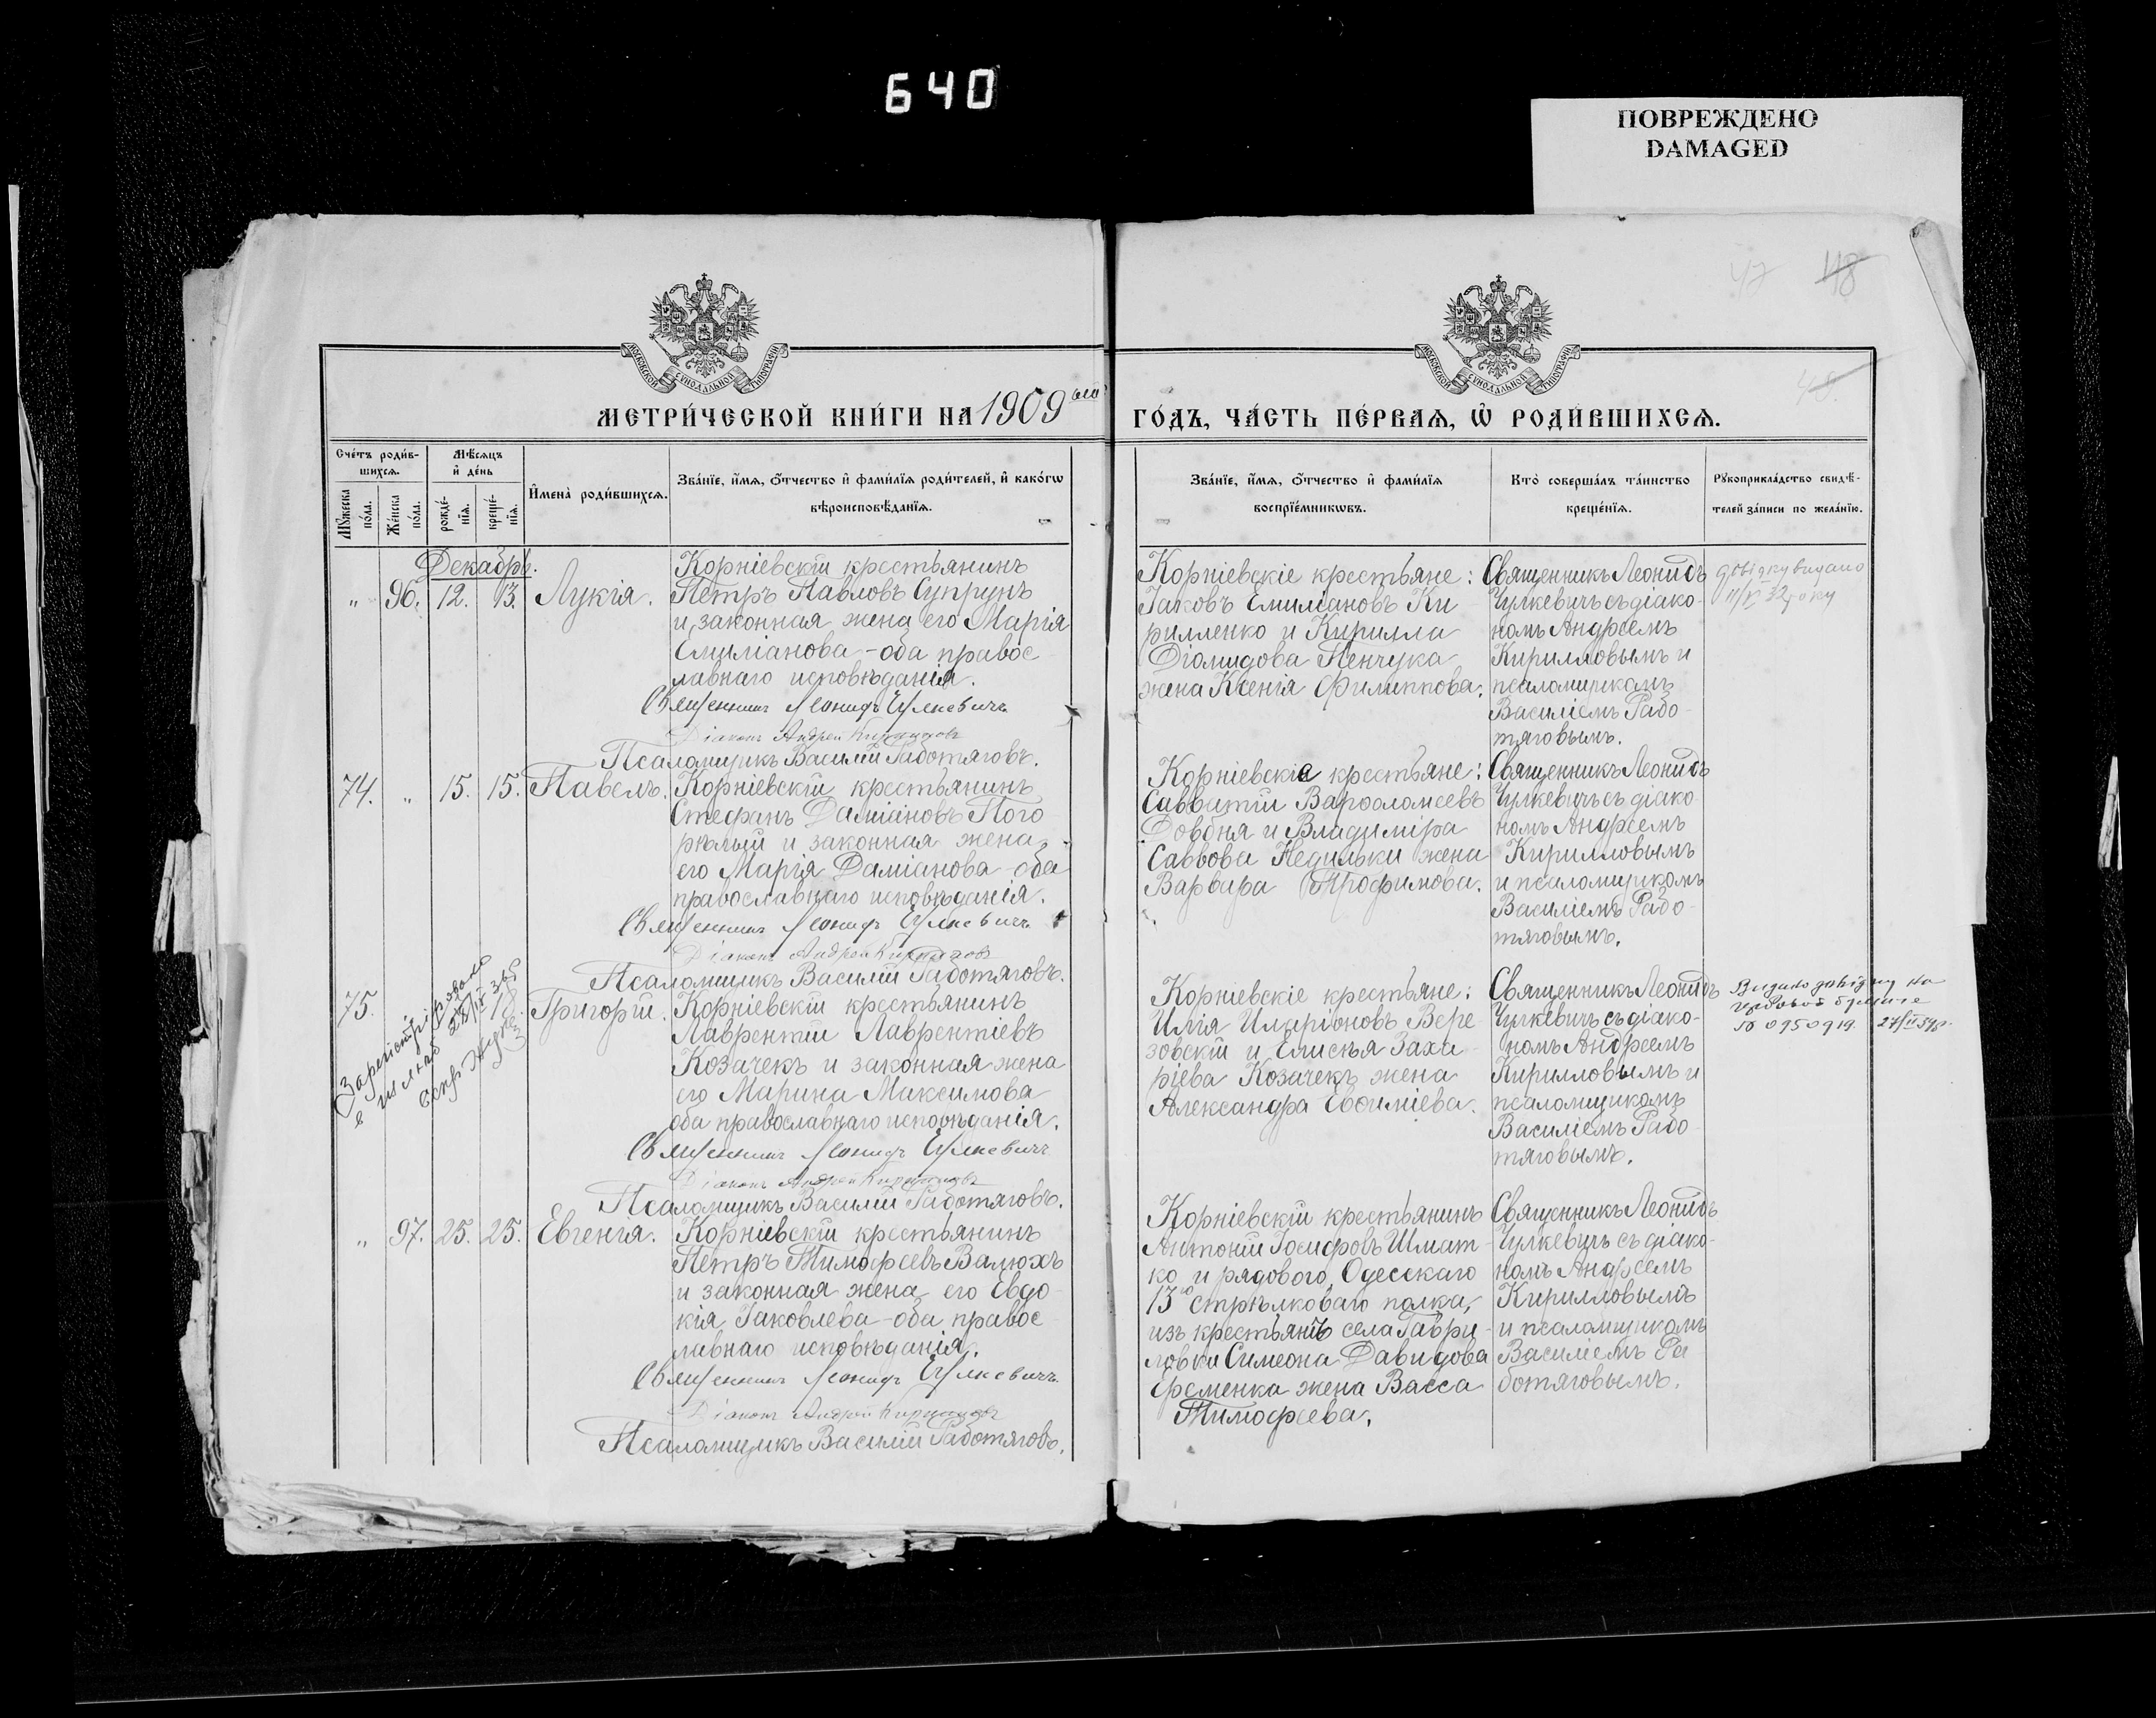 640
ПОВРЕЖДЕНО
DAMAGED
47 48
48.
МОСКОВСКОЙ СѴНОДАЛЬНОЙ ТИПОГРАФІИ
МОСКОВСКОЙ СѴНОДАЛЬНОЙ ТИПОГРАФІИ
МЕТРИ́ЧЕСКОЙ КНИ́ГИ НА 1909 ГО́ДЪ, ЧА́СТЬ ПЕ́РВАѦ, Ѡ҆ РОДИ́ВШИХСѦ.
Сче́тъ роди́в-
шихсѧ.
Мꙋ́жеска по́ла.
Же́нска по́ла.
Мѣ́сѧцъ
и҆ де́нь
рожде́-
нїѧ.
креще́-
нїѧ.
И҆мена̀ роди́вшихсѧ.
Зва́нїе, и҆́мѧ, ѻ҆́тчество и҆ фами́лїѧ роди́телей, и҆ како́гѡ
вѣроисповѣ́данїѧ.
Зва́нїе, и҆́мѧ, ѻ҆́тчество и҆ фами́лїѧ
воспрїе́мникѡвъ.
Кто̀ соверша́лъ та́инство
креще́нїѧ.
Рꙋкоприкла́дство свидѣ́-
телей за́писи по жела́нїю.
Декабрь.
„ 96. 12. 13. Лукія.
Корніевскій крестьянинъ
Петръ Павловъ Супрунъ
и законная жена его Марія
Емиліанова - оба правос
лавнаго исповѣданія.
Священникъ Леонидъ Чулкевичъ
Діаконъ Андрей Кирилловъ
Псаломщикъ Василій Работяговъ.
Корніевскіе крестьяне:
Іаковъ Емиліановъ Ки
рилленко и Кирилла
Діомидова Пенчука
жена Ксенія Филиппова.
Священникъ Леонидъ
Чулкевичъ съ діако-
номъ Андреемъ
Кирилловымъ и
псаломщикомъ
Василіемъ Рабо-
тяговымъ.
довідку видано
32 року
74. „ 15. 15. Павелъ.
Корніевскій крестьянинъ
Стефанъ Даміановъ Пого
рѣлый и законная жена
его Марія Даміанова - оба
православнаго исповѣданія.
Священникъ Леонидъ Чулкевичъ
Діаконъ Андрей Кирилловъ
Псаломщикъ Василій Работяговъ.
Корніевскіе крестьяне:
Савватій Варѳоломеевъ
Довбня и Владиміра
Саввова Недильки жена
Варвара Трофимова.
Священникъ Леонидъ
Чулкевичъ съ діако
номъ Андреемъ
Кирилловымъ
и псаломщикомъ
Василіемъ Рабо-
тяговымъ.
75. 18. Григорій.
Зарегістріровано
Корніевскій крестьянинъ
Лаврентій Лаврентіевъ
Козачекъ и законная жена
его Марина Максимова
оба православнаго исповѣданія.
Священникъ Леонидъ Чулкевичъ
Діаконъ Андрей Кирилловъ
Псаломщикъ Василій Работяговъ.
Корніевскіе крестьяне:
Илія Иларіоновъ Бере-
зовскій и Елисѣя Заха
ріева Козачекъ жена
Александра Евѳиміева.
Священникъ Леонидъ
Чулкевичъ съ діако-
номъ Андреемъ
Кирилловымъ и
псаломщикомъ
Василіемъ Рабо
тяговымъ.
Видано довідку на
гербовой бумаге
№ 0950919.
„ 97. 25. 25. Евгенія.
Корніевскій крестьянинъ
Петръ Тимофеевъ Валюхъ
и законная жена его Евдо
кія Іаковлева - оба правос
лавнаго исповѣданія.
Священникъ Леонидъ Чулкевичъ
Діаконъ Андрей Кирилловъ
Псаломщикъ Василій Работяговъ.
Корніевскій крестьянинъ
Антоній Іосифовъ Шмат-
ко и рядового Одесскаго
13го стрѣлковаго полка,
изъ крестьянъ села Гаври-
ловки Симеона Давидова
Еременка жена Васса
Тимофеева.
Священникъ Леонидъ
Чулкевичъ съ діако-
номъ Андреемъ
Кирилловымъ
и псаломщикомъ
Василіемъ Ра
ботяговымъ.